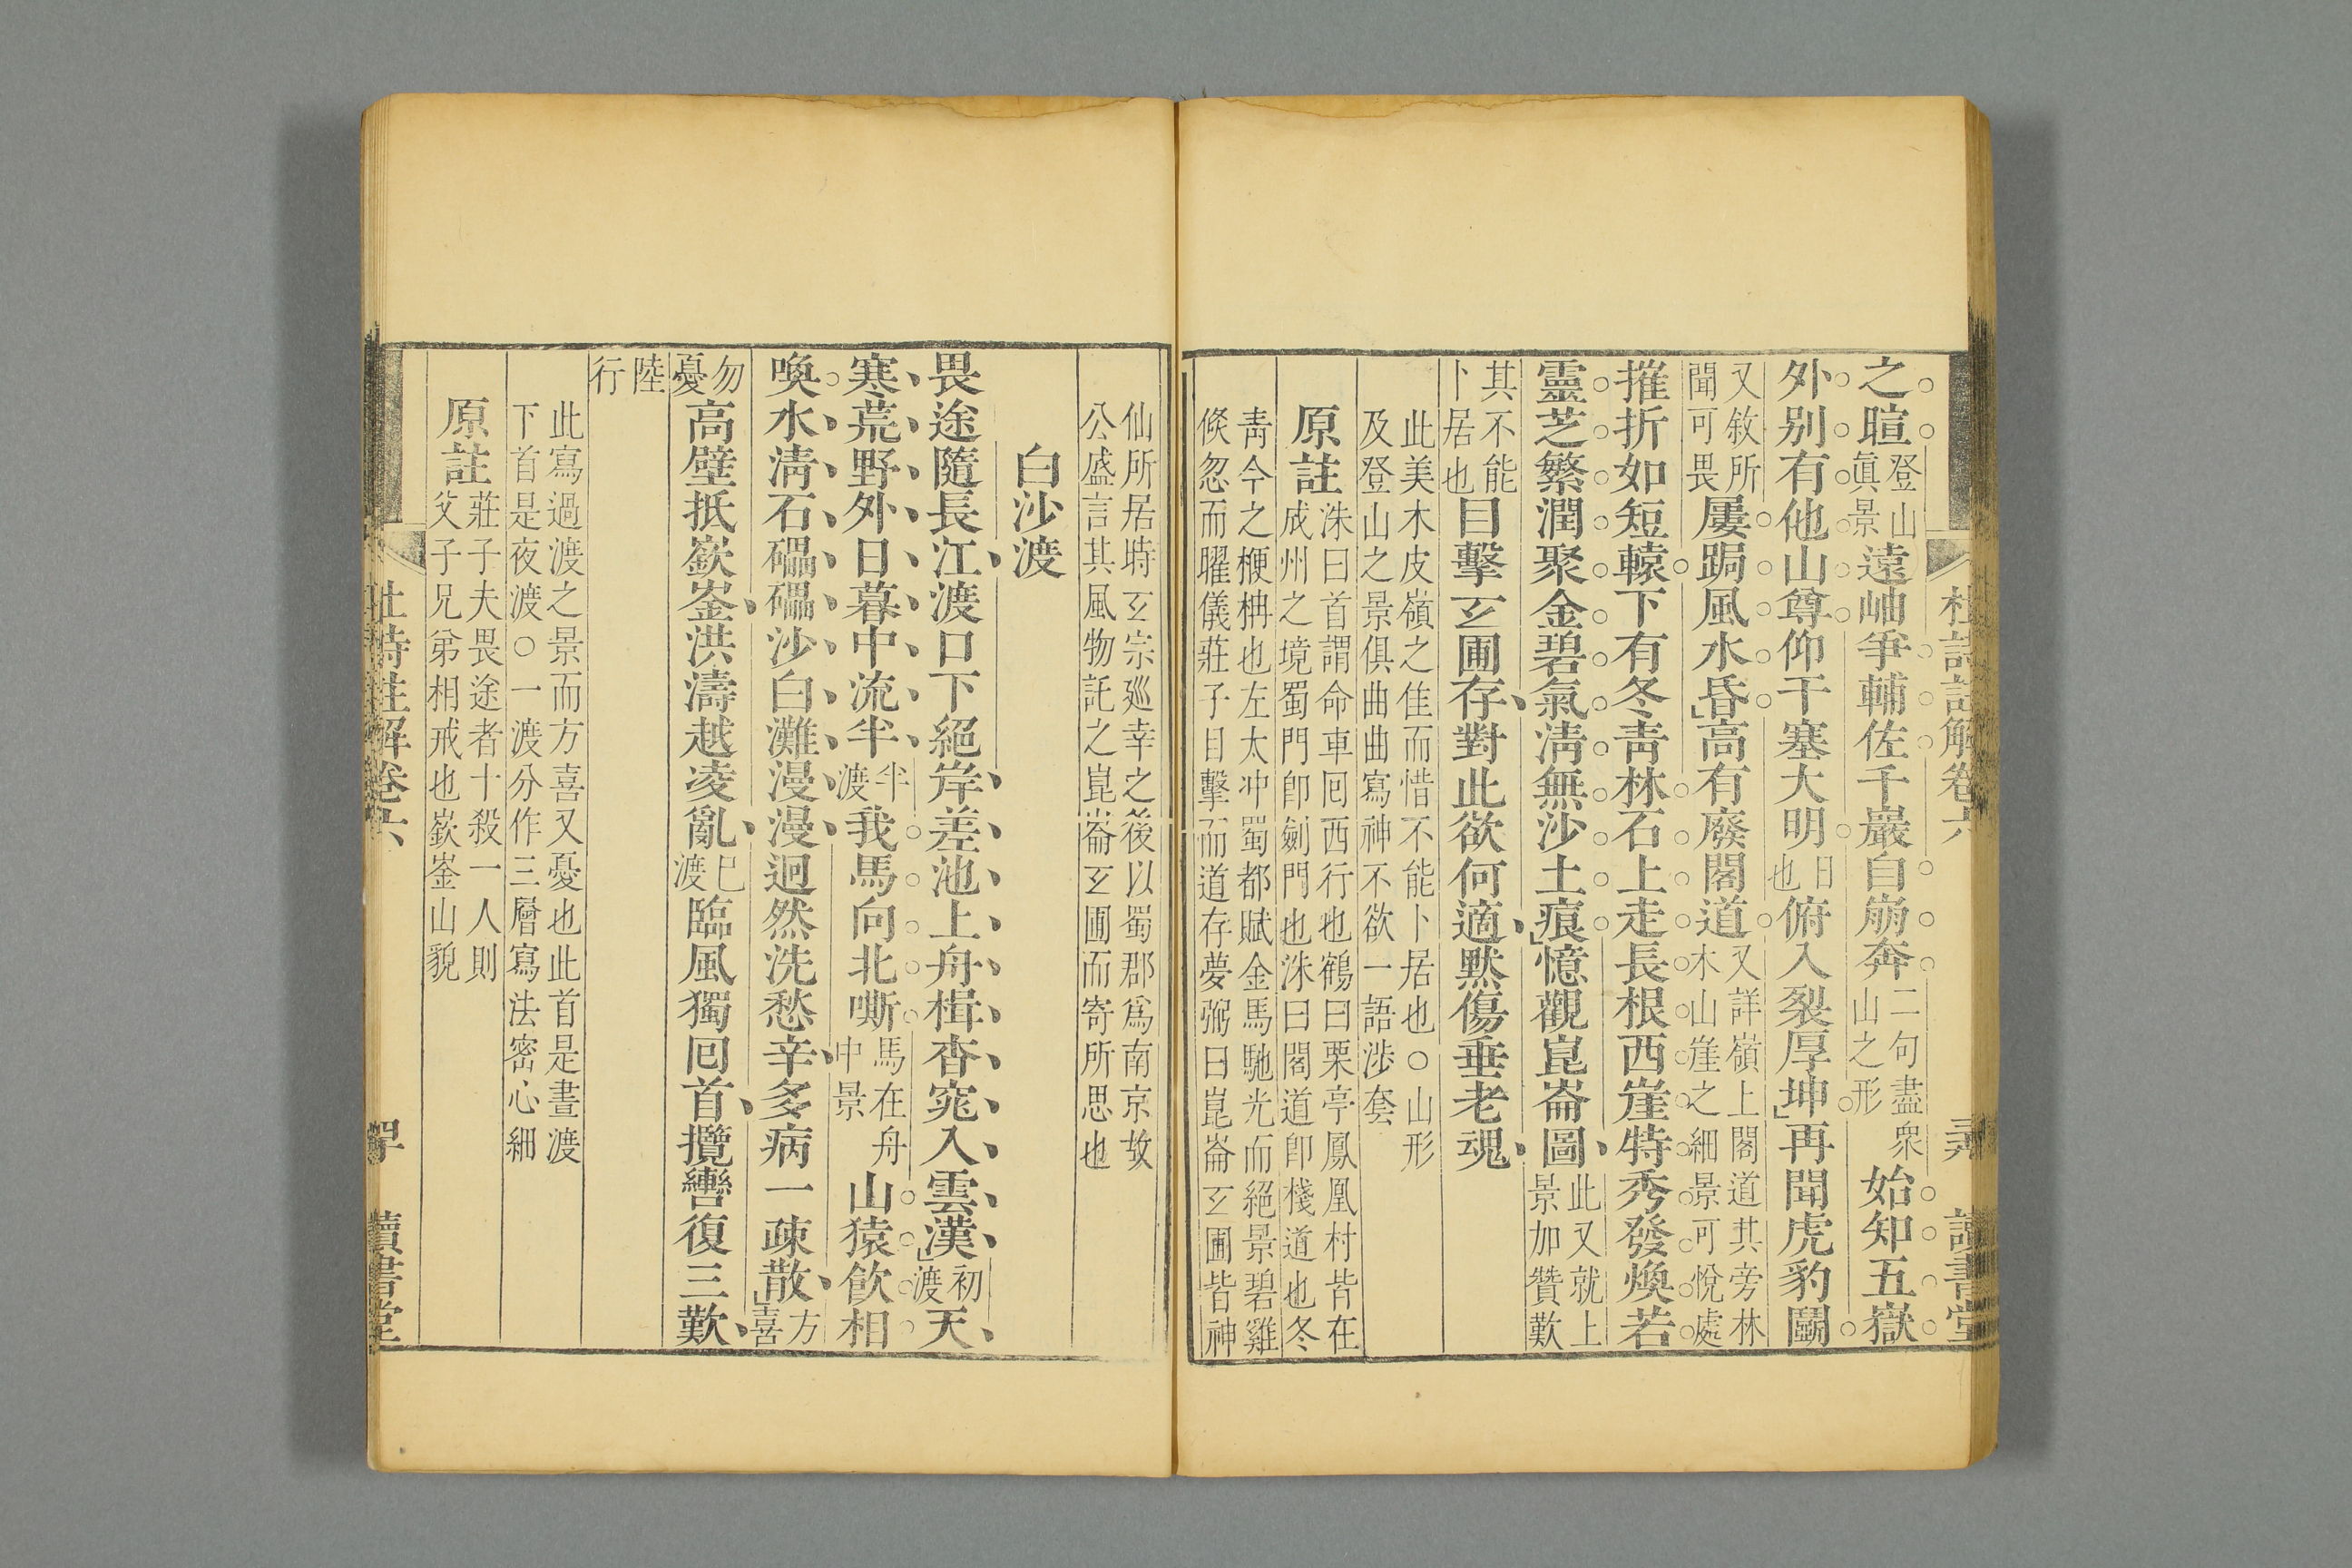 之暄登山眞景遠岫爭輔佐千巖自崩奔二句盡衆山之形始知五嶽
外别有他山尊仰干塞大明日也俯入裂厚坤再聞虎豹鬭
又敘所聞可畏屢跼風水昏高有廢閣道又詳嶺上閣道其旁林木山崖之細景可悅處
摧折如短轅下有冬靑林石上走長根西崖特秀發煥若
靈芝繁潤聚金碧氣淸無沙土痕憶觀崑崙圖此又就上景加贊歎
其不能卜居也目擊玄圃存對此欲何適黙傷垂老魂
此美木皮嶺之佳而惜不能卜居也○山形
及登山之景俱曲曲寫神不欲一語涉套
原註洙曰首謂命車囘西行也鶴曰栗亭鳳凰村皆在
成州之境蜀門卽劍門也洙曰閣道卽棧道也冬
靑今之楩柟也左太冲蜀都賦金馬馳光而絕景碧雞
倏忽而曜儀莊子目擊而道存夢弼曰崑崙玄圃皆神
仙所居時玄宗廵幸之後以蜀郡爲南京故
公盛言其風物託之崑崙玄圃而寄所思也
白沙渡
畏途隨長江渡口下絕岸差池上舟楫杳窕入雲漢初渡天
寒荒野外日暮中流半半渡我馬向北嘶馬在舟中景山猿飮相
喚水淸石礧礧沙白灘漫漫迥然洗愁辛多病一疎散方喜
勿憂高壁抵嶔崟洪濤越凌亂已渡臨風獨囘首攬轡復三歎
陸行
此寫過渡之景而方喜又憂也此首是晝渡
下首是夜渡○一渡分作三層寫法密心細
原註莊子夫畏途者十殺一人則
父子兄弟相戒也嶔崟山貌
杜詩註解卷六
讀書堂